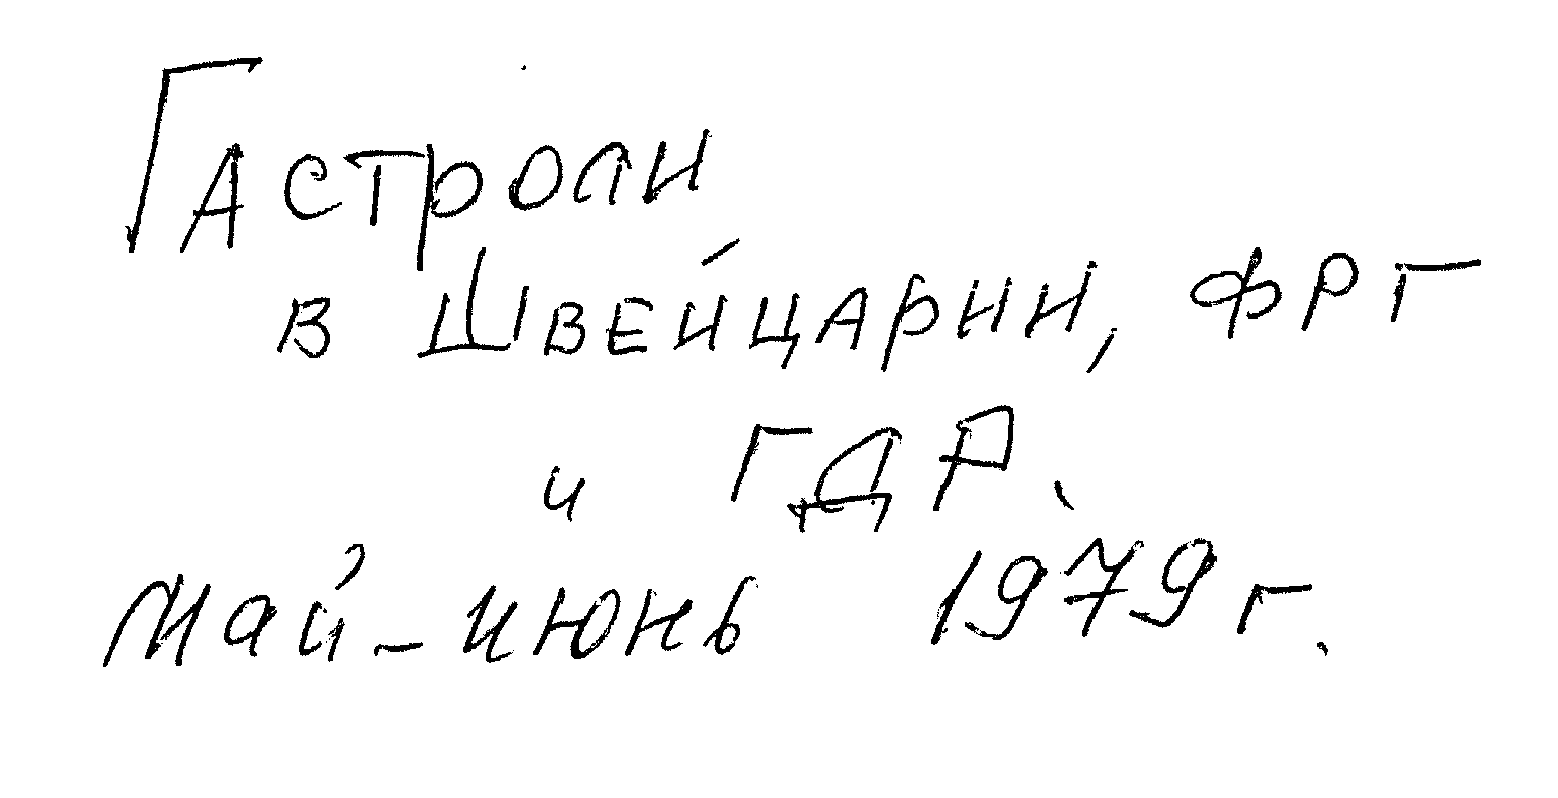 Гастроли
в Швейцарии, ФРГ
и ГДР.
май-июнь 1979 г.